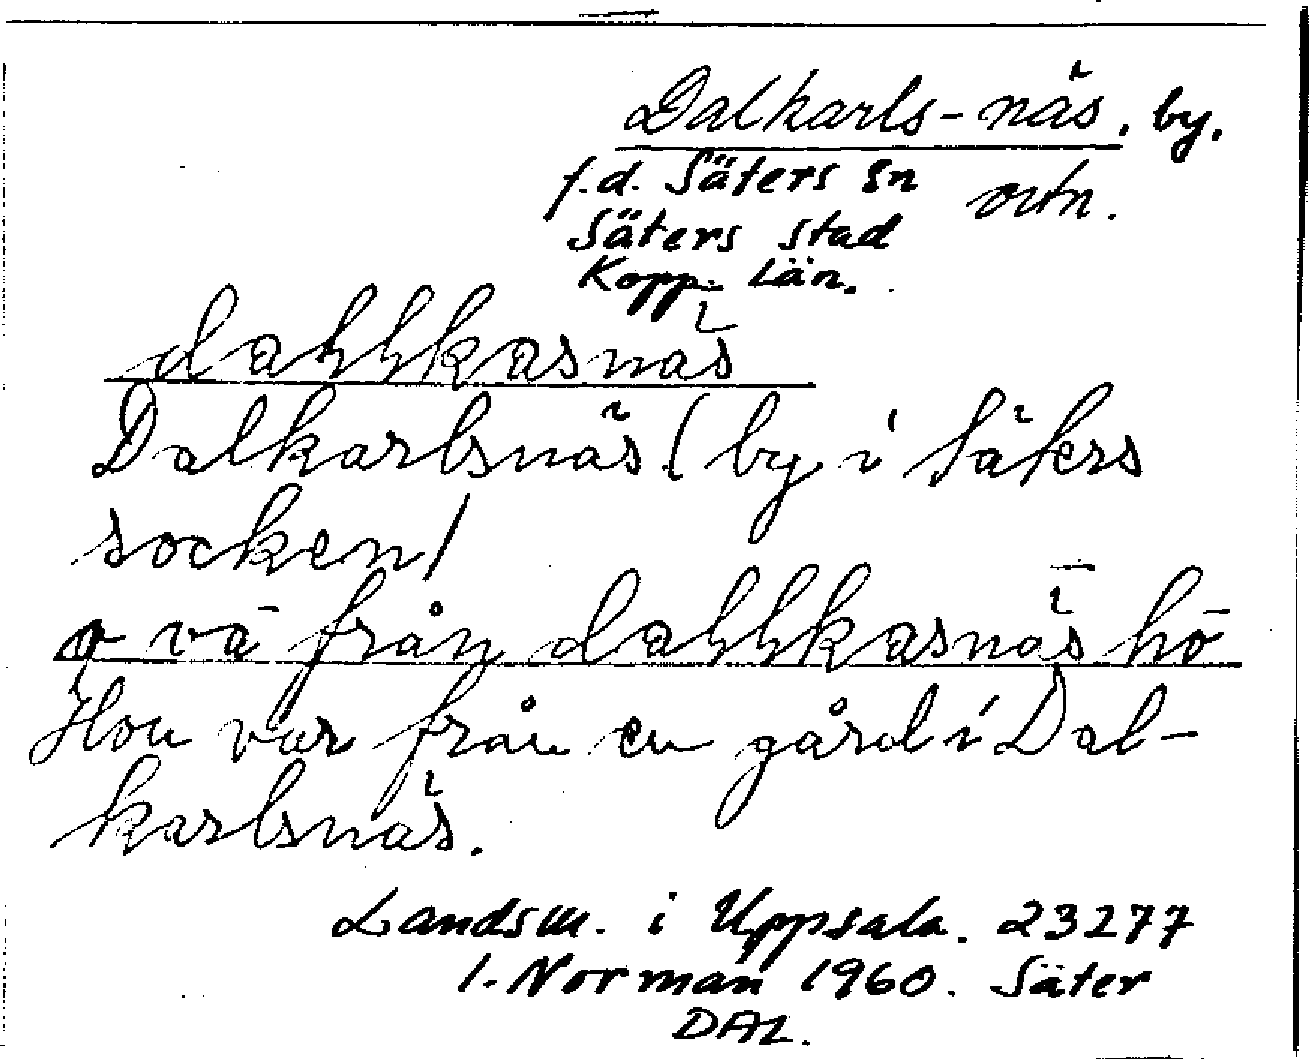 Dalkarls-näs. by.
f.d. Säters sn ortn.
Säters stad
Kopp. Län.
dahhkasnäs
Dalkarlsnäs (by i Säters
socken/
va från dahhkasnäs hö
Hon var från en gård i Dal-
karlsnäs.
Landsm. i Uppsala. 23277
I. Norman 1960. Säter
DAL.